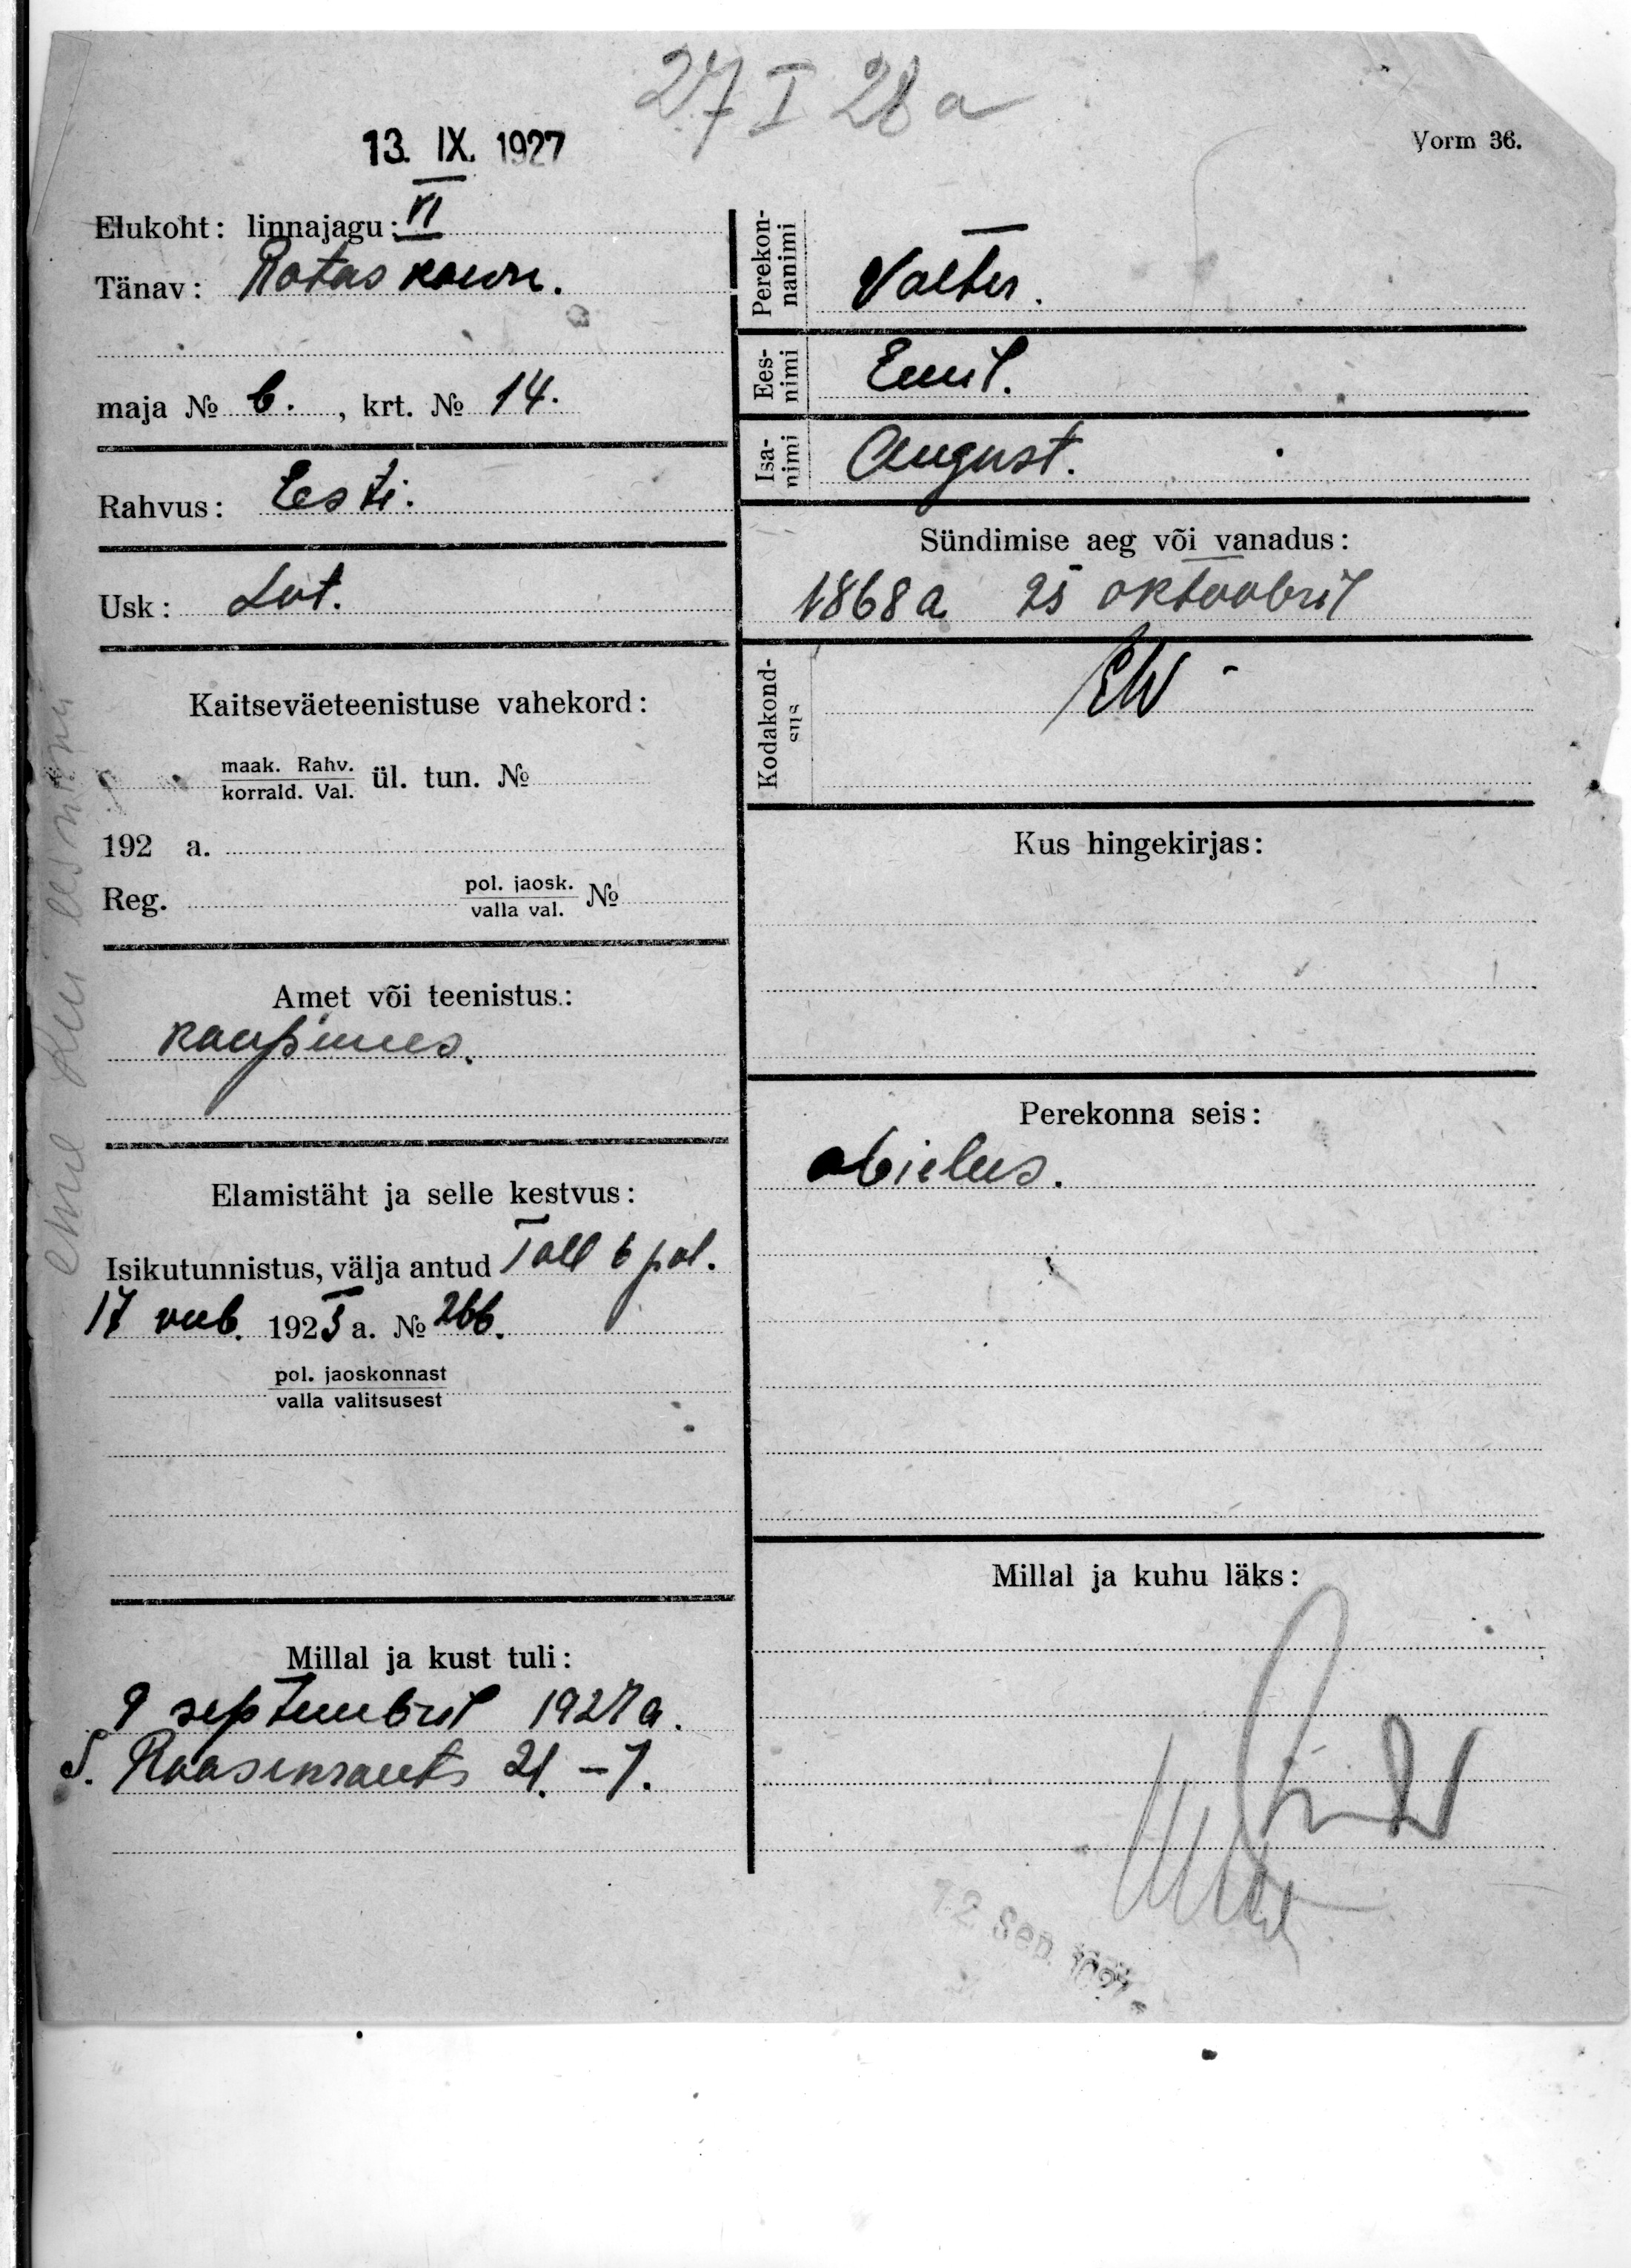 27 I 28 a
13. IX. 1927
Vorm 36.
Elukoht: linnajagu: VI
Tänav: Rataskaevu.
maja № 6. , krt. № 14.
Rahvus: Eesti.
Usk: Lut.
Kaitseväeteenistuse vahekord:
maak. Rahv.
korrald. Val. ül. tun. №
192 a.
Reg. pol. jaosk.
valla val. №
Amet või teenistus:
kaupmees.
Elamistäht ja selle kestvus:
Isikutunnistus, välja antud Tall 6 pol.
17 veeb. 1925 a. № 266.
pol. jaoskonnast
valla valitsusest
Millal ja kust tuli:
9 septembril 1927 a.
S. Roosikrants 21. – 7.
Perekon-
nanimi Valter.
Ees-
nimi Emil.
Isa-
nimi August.
Sündimise aeg või vanadus:
1868 a 25 oktoobril
Kodakond-
sus EW
Kus hingekirjas:
Perekonna seis:
abielus.
Millal ja kuhu läks:
12 Sep. 1927